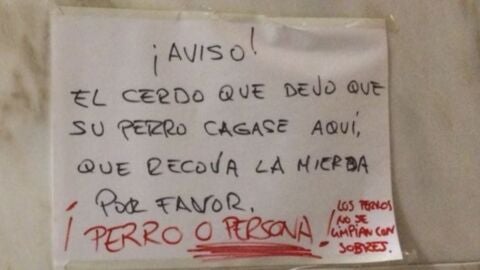 ¡AVISO!
EL CERDO QUE DEJO QUE
SU PERRO CAGASE AQUÍ,
QUE RECOVA LA MIERDA
POR FAVOR.
¡PERRO O PERSONA!
LOS PERROS
NO SE
LIMPIAN CON
SOBRES.